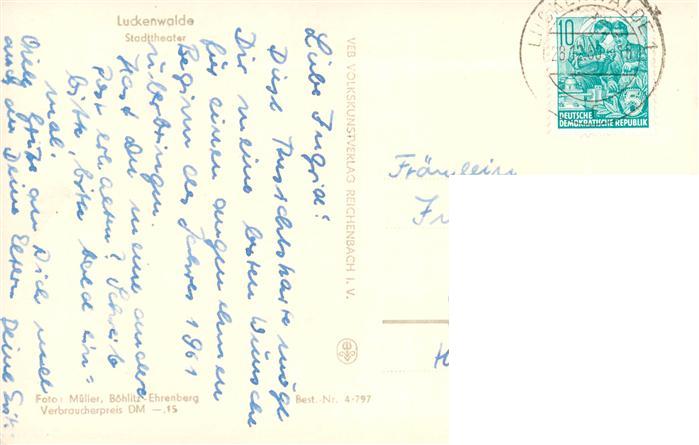 Luckenwalde
Stadttheater
Liebe Ingrid!
Diese Ansichtskarte möge
Dir meine besten Wünsche
für einen angenehmen
Beginn des Jahres 1961
überbringen.
Hast Du meine andere
Post erhalten? Schreib
bitte, bitte bald ein=
mal.
Viele Grüße an Dich und
auch an Deine Eltern Deine
Foto: Müller, Böhlitz-Ehrenberg
Verbraucherpreis DM —.15
Best.-Nr. 4-797
VEB VOLKSKUNSTVERLAG REICHENBACH I. V.
LUCKENWALDE 1
10
5
DEUTSCHE
DEMOKRATISCHE REPUBLIK
Fräulein